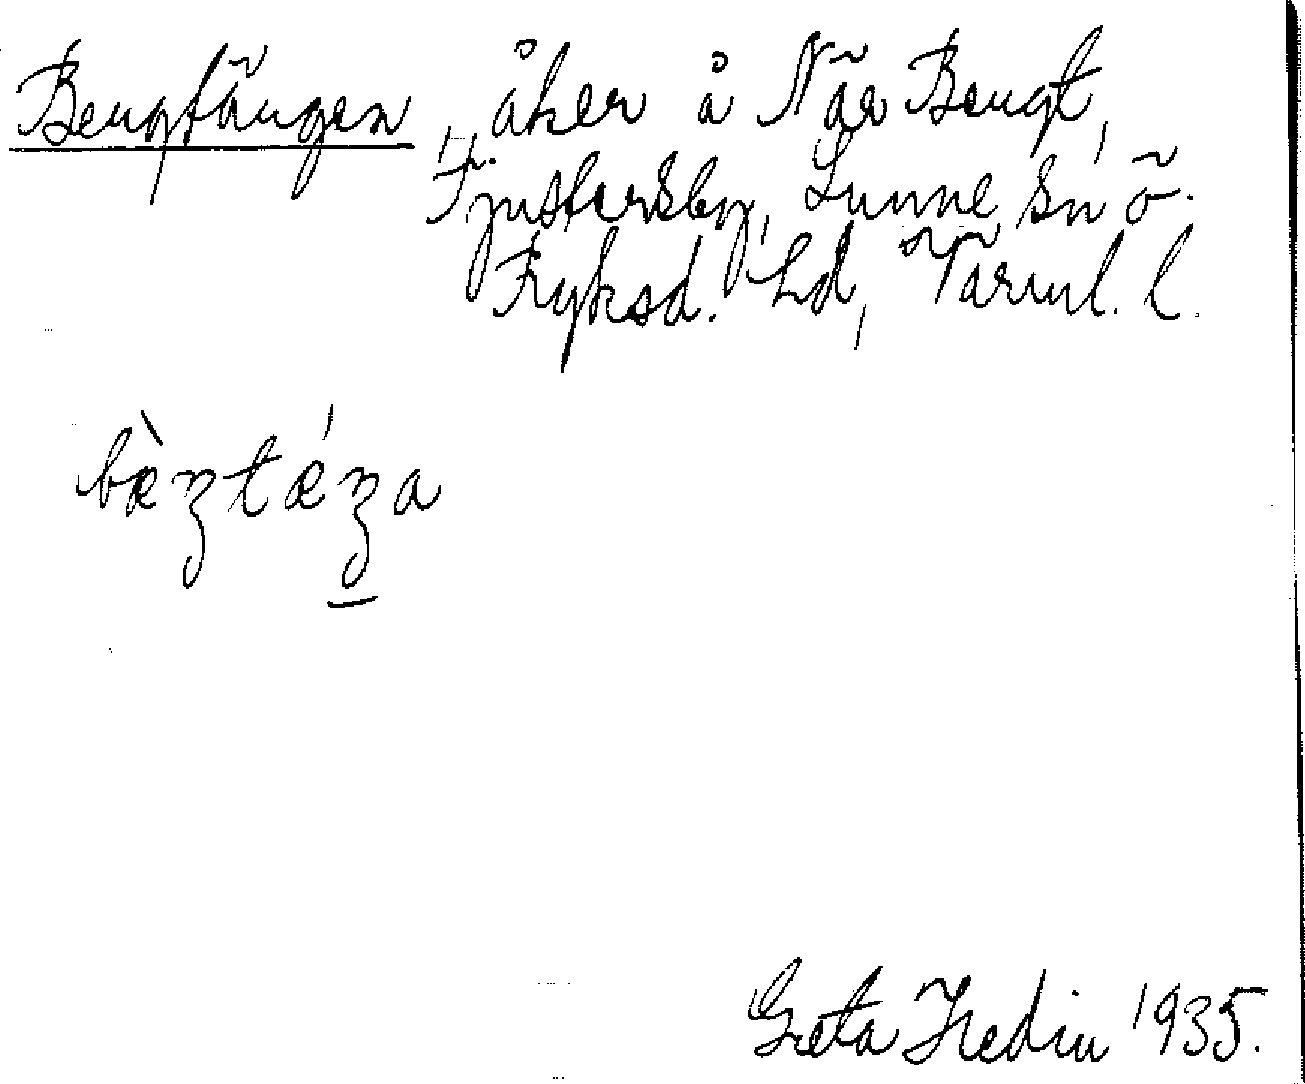 Bengtängen, åker å När Bengt,
Fjustersby, Sunne sn ö.
Fryksd. hd, Värml. l.
bὲŋtǽŋa
Greta Hedin 1935.